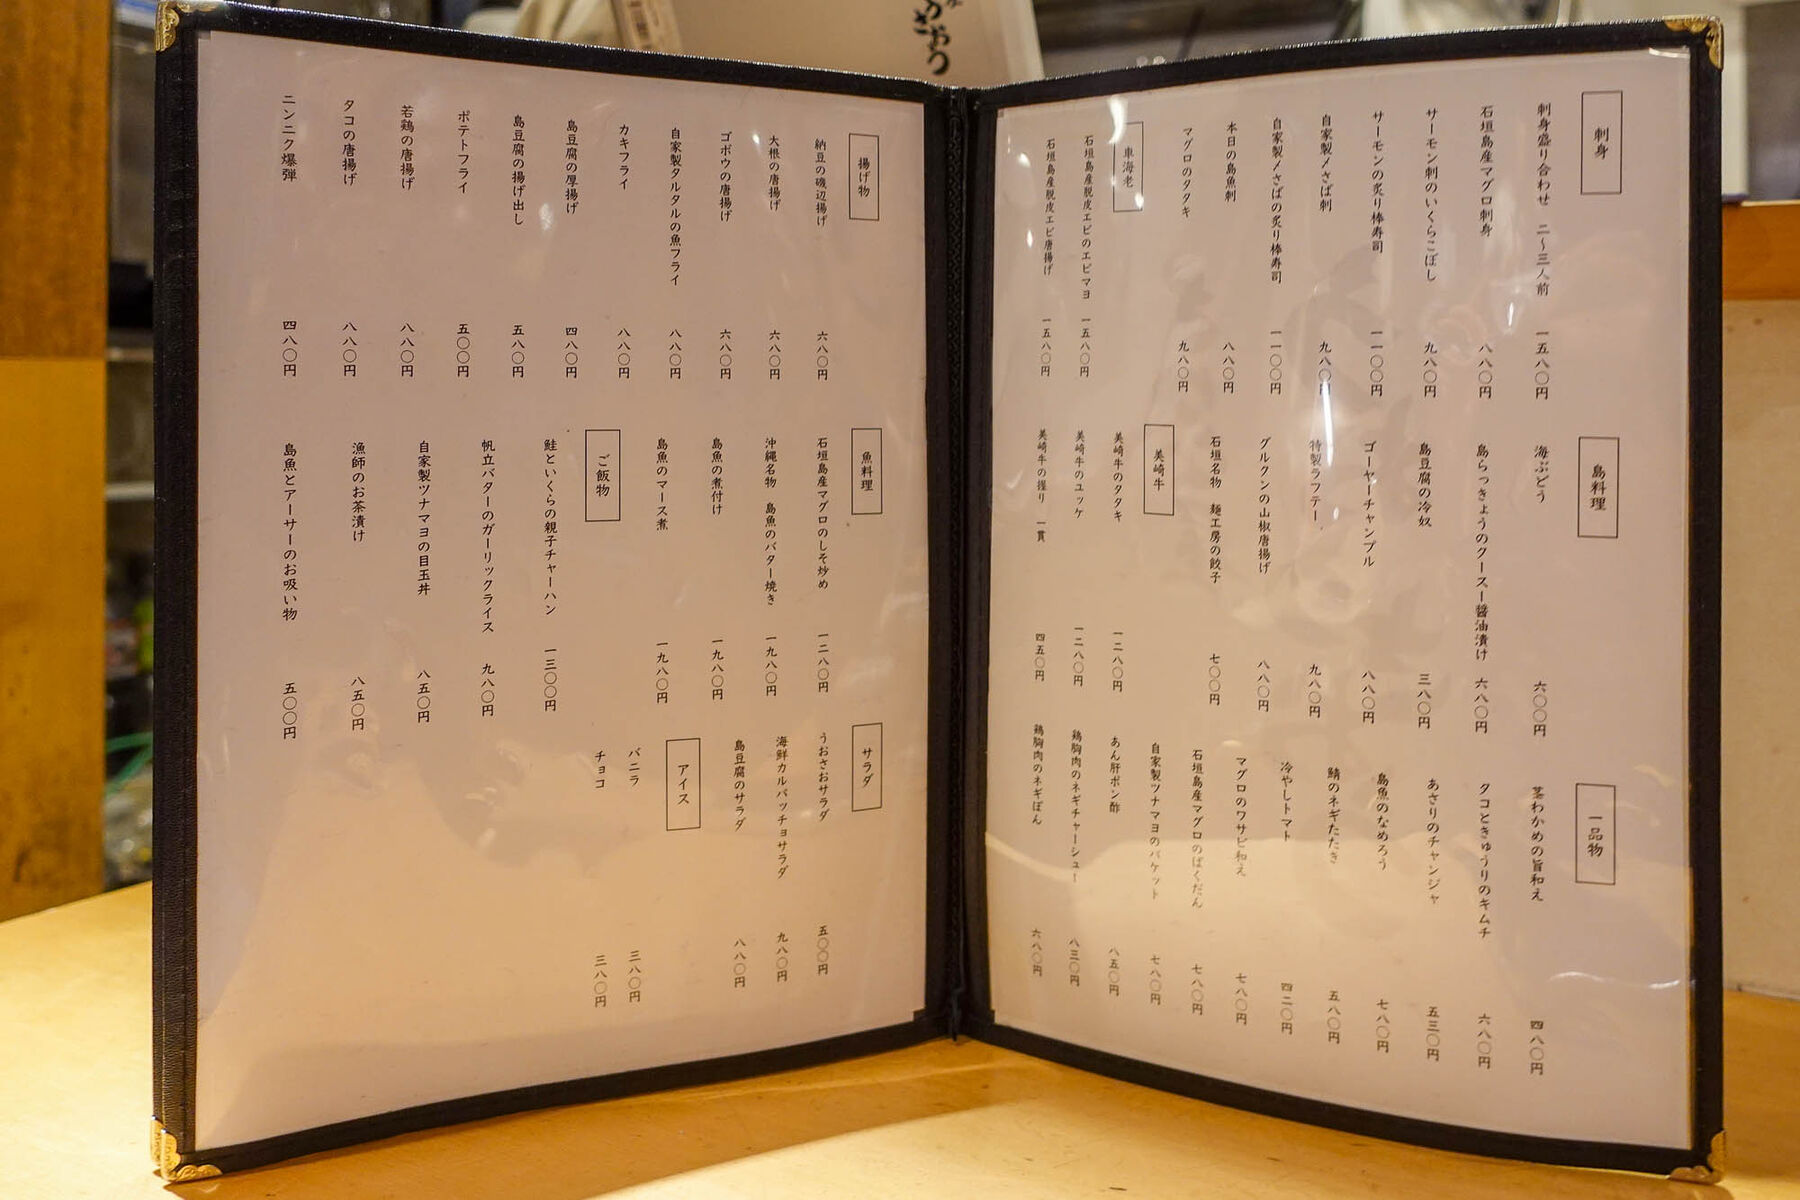 刺身
刺身盛り合わせ 二～三人前 一五八〇円
石垣島産マグロ刺身 八八〇円
サーモン刺のいくらこぼし 九八〇円
サーモンの炙り棒寿司 一一〇〇円
自家製〆さば刺 九八〇円
自家製〆さばの炙り棒寿司 一一〇〇円
本日の島魚刺 八八〇円
マグロのタタキ 九八〇円
車海老
石垣島産脱皮エビのエビマヨ 一五八〇円
石垣島産脱皮エビ唐揚げ 一五八〇円
島料理
海ぶどう 六〇〇円
島らっきょうのクースー醤油漬け 六八〇円
島豆腐の冷奴 三八〇円
ゴーヤーチャンプル 八八〇円
特製ラフテー 九八〇円
グルクンの山椒唐揚げ 八八〇円
石垣名物 麺工房の餃子 七〇〇円
美崎牛
美崎牛のタタキ 一二八〇円
美崎牛のユッケ 一二八〇円
美崎牛の握り 一貫 四五〇円
一品物
茎わかめの旨和え 四八〇円
タコときゅうりのキムチ 六八〇円
あさりのチャンジャ 五三〇円
島魚のなめろう 七八〇円
鯖のネギたたき 五八〇円
冷やしトマト 四二〇円
マグロのワサビ和え 七八〇円
石垣島産マグロのばくだん 七八〇円
自家製ツナマヨのバケット 七八〇円
あん肝ポン酢 八五〇円
鶏胸肉のネギチャーシュー 八三〇円
鶏胸肉のネギぽん 六八〇円
揚げ物
納豆の磯辺揚げ 六八〇円
大根の唐揚げ 六八〇円
ゴボウの唐揚げ 六八〇円
自家製タルタルの魚フライ 八八〇円
カキフライ 八八〇円
島豆腐の厚揚げ 四八〇円
島豆腐の揚げ出し 五八〇円
ポテトフライ 五〇〇円
若鶏の唐揚げ 八八〇円
タコの唐揚げ 八八〇円
ニンニク爆弾 四八〇円
魚料理
石垣島産マグロのしそ炒め 一二八〇円
沖縄名物 島魚のバター焼き 一九八〇円
島魚の煮付け 一九八〇円
島魚のマース煮 一九八〇円
ご飯物
鮭といくらの親子チャーハン 一三〇〇円
帆立バターのガーリックライス 九八〇円
自家製ツナマヨの目玉丼 八五〇円
漁師のお茶漬け 八五〇円
島魚とアーサーのお吸い物 五〇〇円
サラダ
うおさおサラダ 五〇〇円
海鮮カルパッチョサラダ 九八〇円
島豆腐のサラダ 八八〇円
アイス
バニラ 三八〇円
チョコ 三八〇円